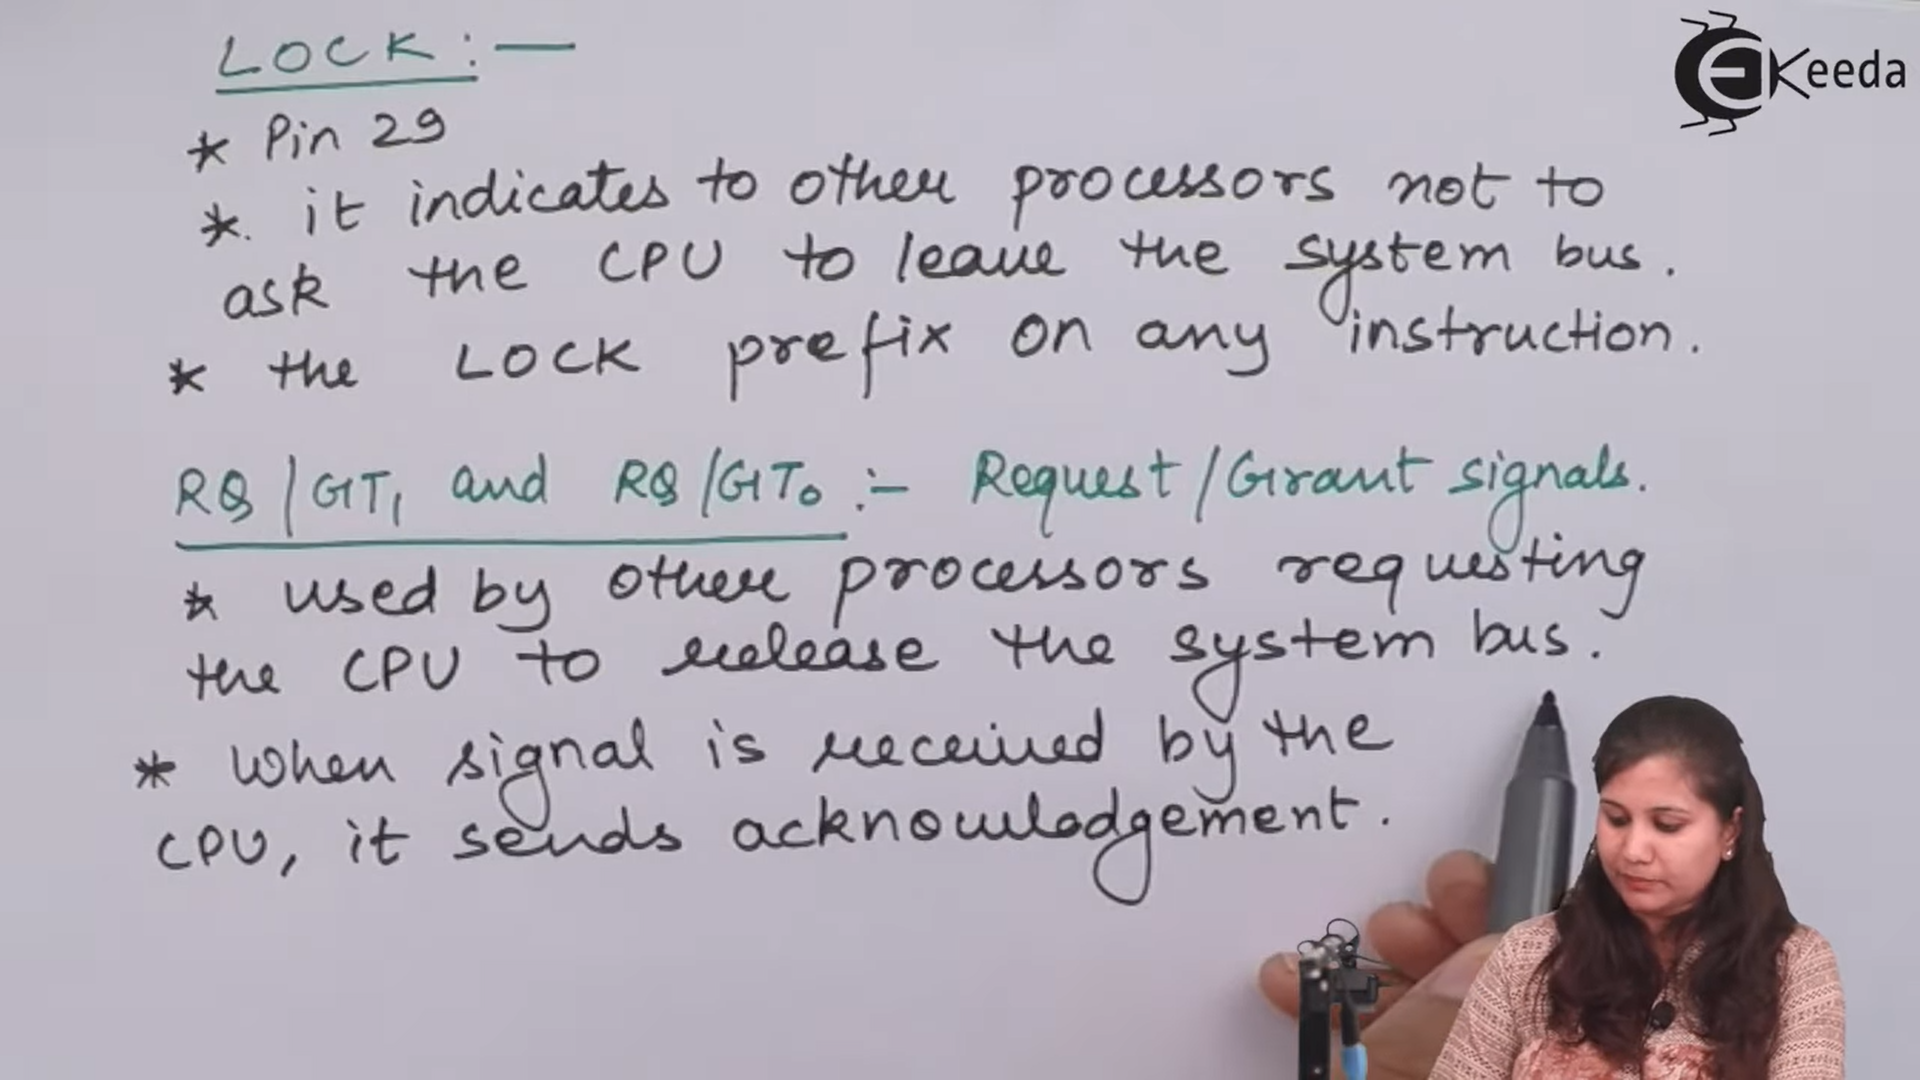 LOCK :—
* Pin 29
*. it indicates to other processors not to
ask the CPU to leave the system bus.
* the LOCK prefix on any instruction.
RQ/GT₁ and RQ/GT₀ :- Request/Grant signals.
* used by other processors requesting
the CPU to release the system bus.
* When signal is received by the
CPU, it sends acknowledgement.
EKeeda